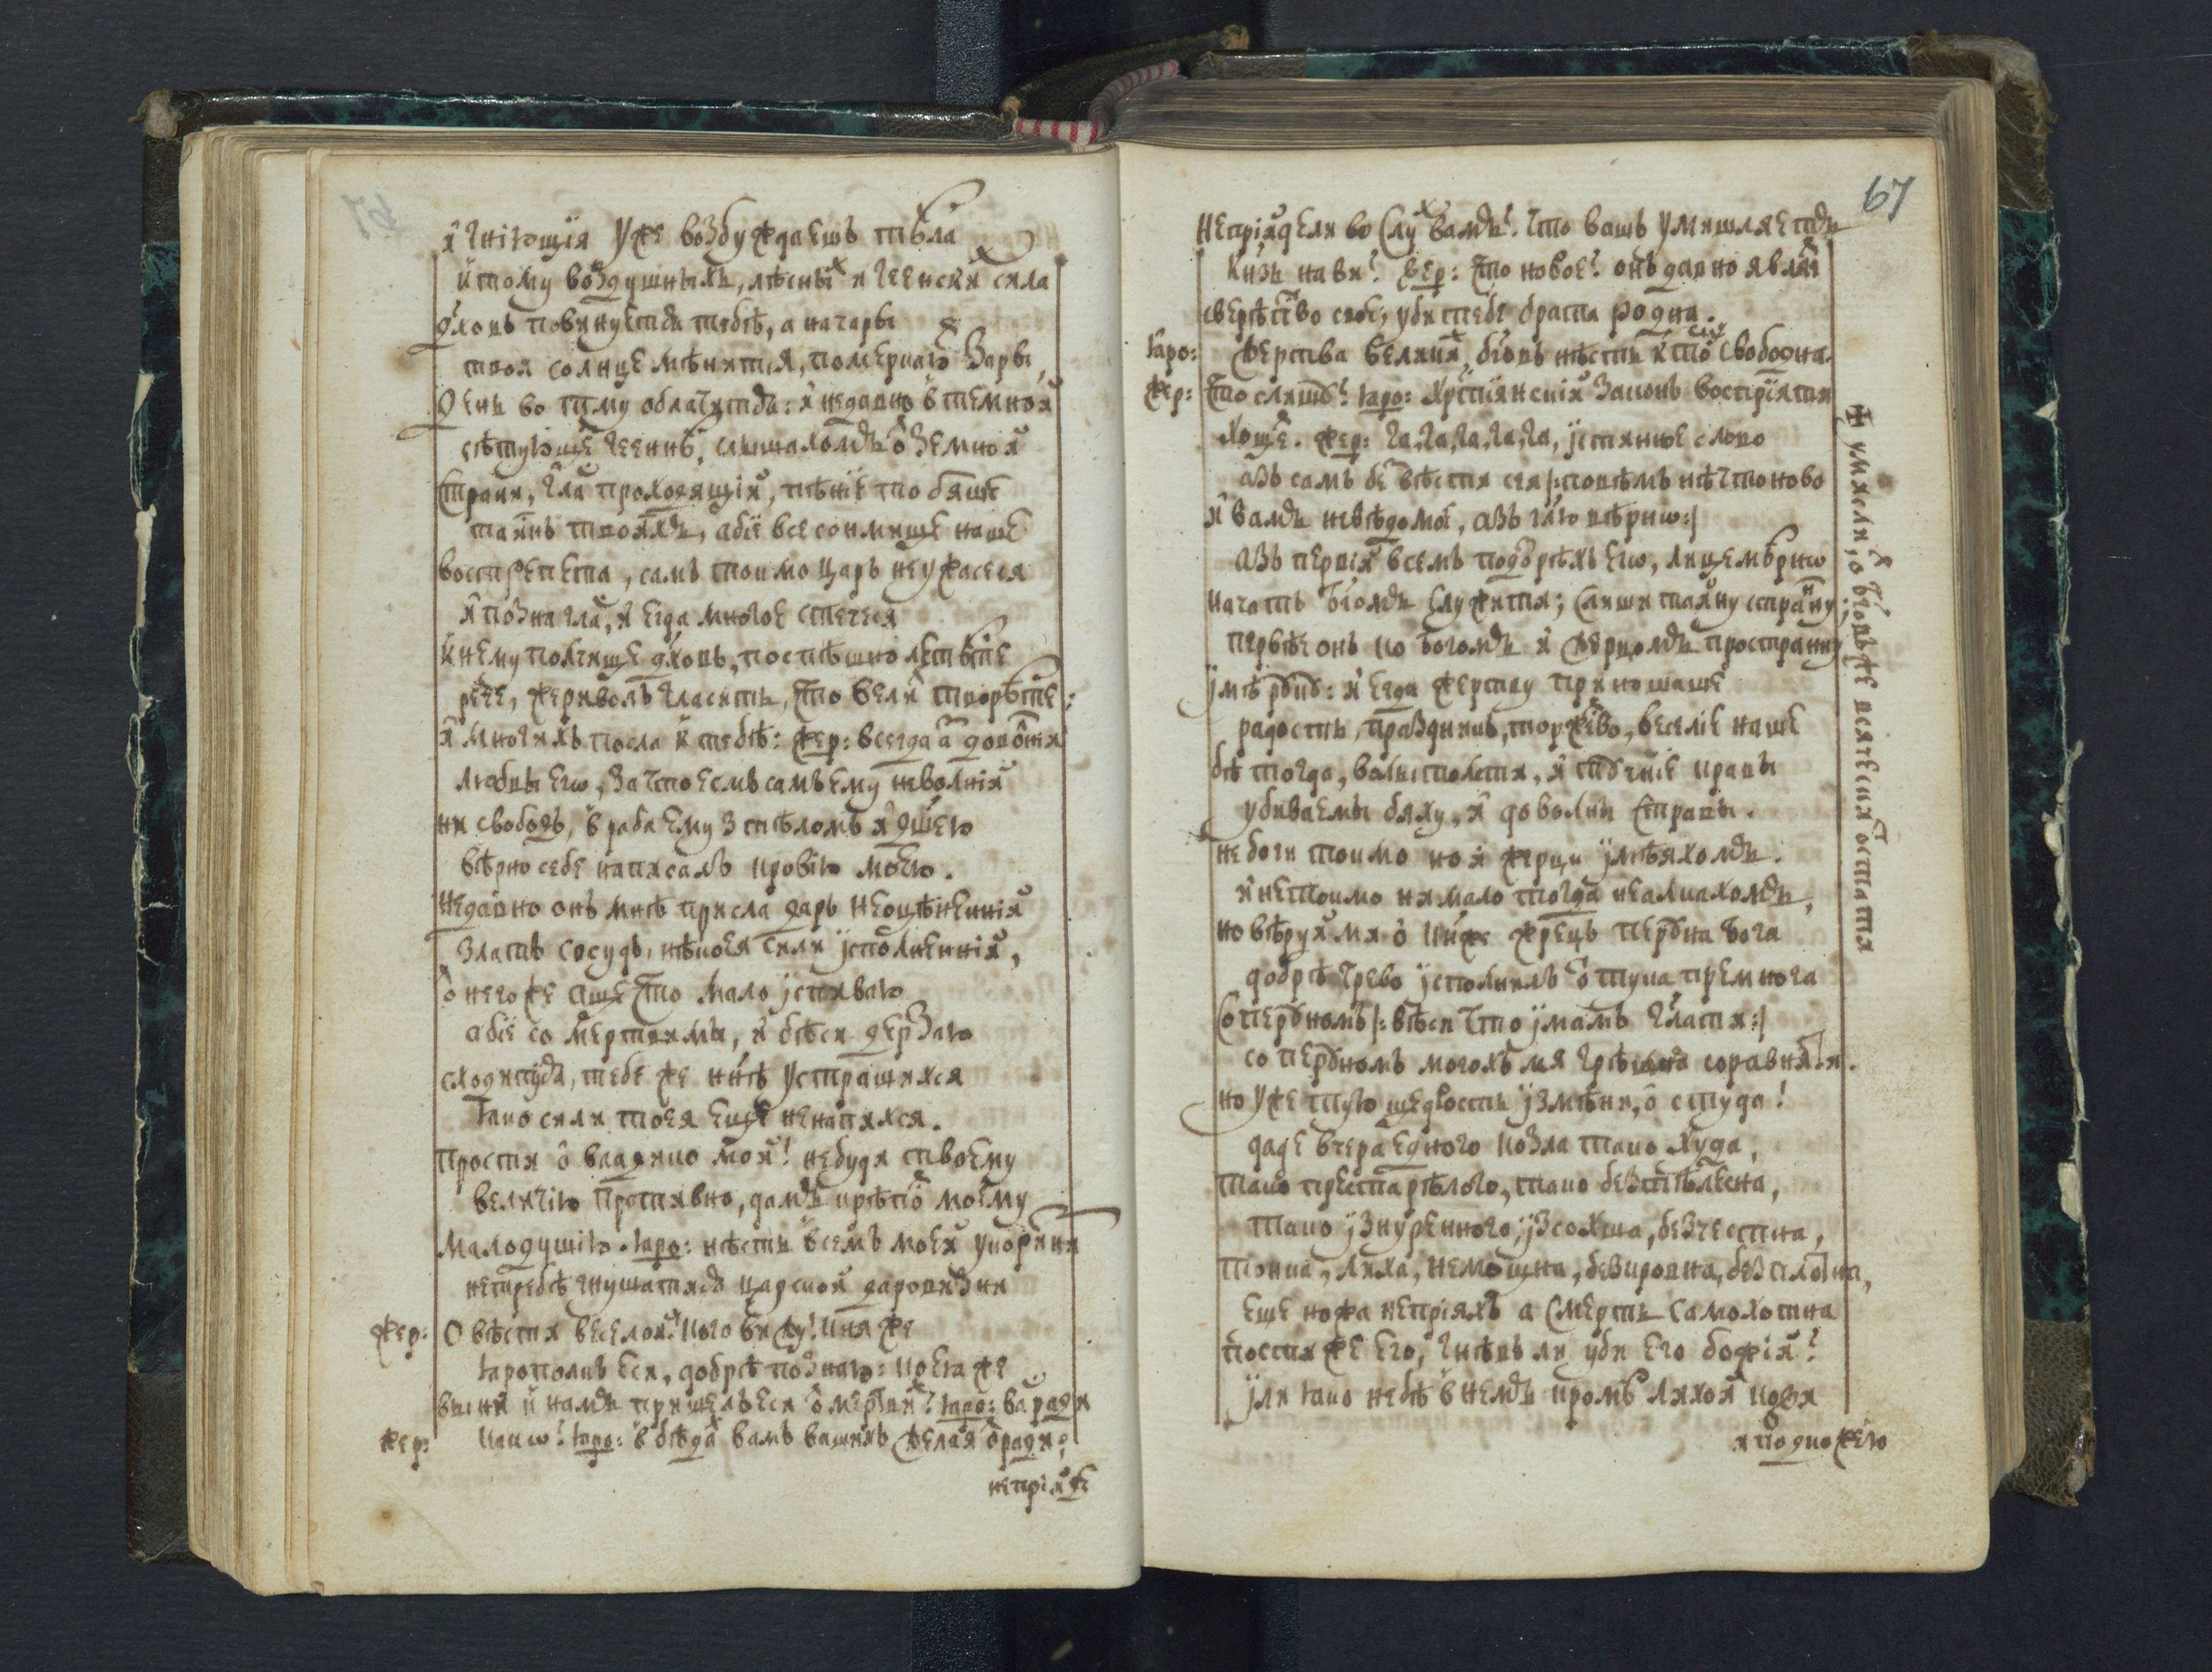 и гніющія уже возбуждаешъ тѣла
Ктому воздушныхъ, лѣсныхъ и геенски сила
духовъ повинуетъ тебѣ, а на чары
твоя солнце мѣнится, померкаю Зары,
День во тму облачитъ: и недавно в темной
сѣтующе гееннѣ, слышахомъ ѿ земной
Страни, гла проходящій, пѣніе то бяше
таинъ твоихъ, абіе все сонмище наше
вострепета, самъ токмо Царь неужасеся
и позна гла, и егда многое стечеся
к нему полчище духовъ, поспѣшно летѣте
рече, жериволъ гласитъ, что вели творѣте:
и многихъ посла к тебѣ: жер: всегда а
любвы его, За что есмъ самъ ему неволній
ни свободъ, в раба ему з тѣломъ и дшею
вѣрно себе написалъ кровію моею.
Недавно онъ мнѣ присла даръ неоцѣненній
Златъ сосудъ, нѣкоея сили исполненній,
ѿ негоже аще что мало испиваю
абіе со мертвими, и бѣси дерзаю
сходится, тебе же ннѣ устрашихся
Яко сили тоея еще ненапихся.
Прости о владико мой! небуди твоему
величію противно, дамъ крѣпо моему
Малодушію. Яро: нѣсть всемъ моея укоризни
нетребѣ гнушатися царской даровизни
Жер: О вѣсти веселой! кого вижу! княже
Ярополкъ еси, добрѣ познаю: коея же
вини к намъ пришелъ еси ѿ мертви? Яро: ва ради
Жер: Како? Яро: в бѣда вамъ вашихъ желая отради.
непріяте
67
Непріятели во слу вамъ? что вашъ умишляетъ
Кнзь нави? Жер: что новое? онъ давно явлѧ
сверѣпство свое, уби тебе брата родна.
Яро: Жертва велики, бговъ нѣсть к то свободна.
Жер: что слишѫ? Яро: Хрстіянскій Законъ воспріяти
хоще. Жер: га, га, га, га, га, истинное слово
азъ самъ бе вѣсти сея /: повѣмъ нѣчто ново
и вамъ невѣдомо, азъ глю вѣрно :/
азъ первій всемъ подозрѣхъ его, лицемѣрно
начатъ бгомъ служити; слиши тайну странну;
первѣе онъ ко богомъ и жерцомъ пространну
имѣ рѫкѫ: и егда жертву приношаше
радость, праздникъ, торжество, веселіе наше
бѣ тогда, вали толсти, и тѫчніе крави
убиваемы бяху, и доволни страви.
небоги токмо но и жерци имѣяхомъ.
и нетокмо ни мало тогда неалкахомъ,
но вѣруй ми ѡ княже жрецъ Перѫна бога
добрѣ чрево исполнилъ ѿ тука премнога
Со перѫномъ /: вѣси что имамъ глати :/
со перѫномъ могохъ мя грѣшна соравнати.
но уже тую щедрость измѣни, о студа!
даде вчера едного козла тако худа,
тако престарѣлого, тако безтѣлесна,
тако изнуренного, изсохша, безчестна,
тонка, лиха, немощна, безкровна, безплотна,
еще ножа непріяхъ а смерть самохотна
пости же его, гнѣвъ ли уби его божій?
или яко небѣ в немъ кромѣ лихой кожи
и подножію
✠ имисли, ѡ бговъ же всячески ѿстати